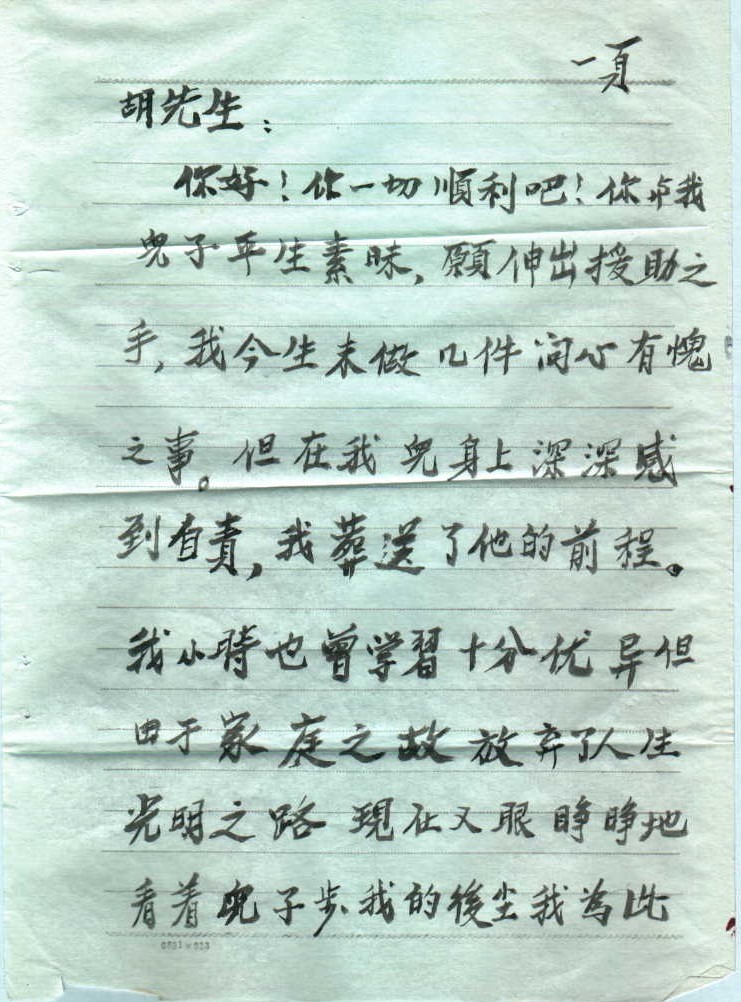 一頁
胡先生：
你好！你一切順利吧！你与我
兒子平生素昧，願伸出援助之
手，我今生未做几件问心有愧
之事。但在我兒身上深深感
到有責，我葬送了他的前程。
我小時也曾学習十分优异但
由于家庭之故放弃了人生
光明之路 現在又眼睁睁地
看着兒子步我的後尘我為此